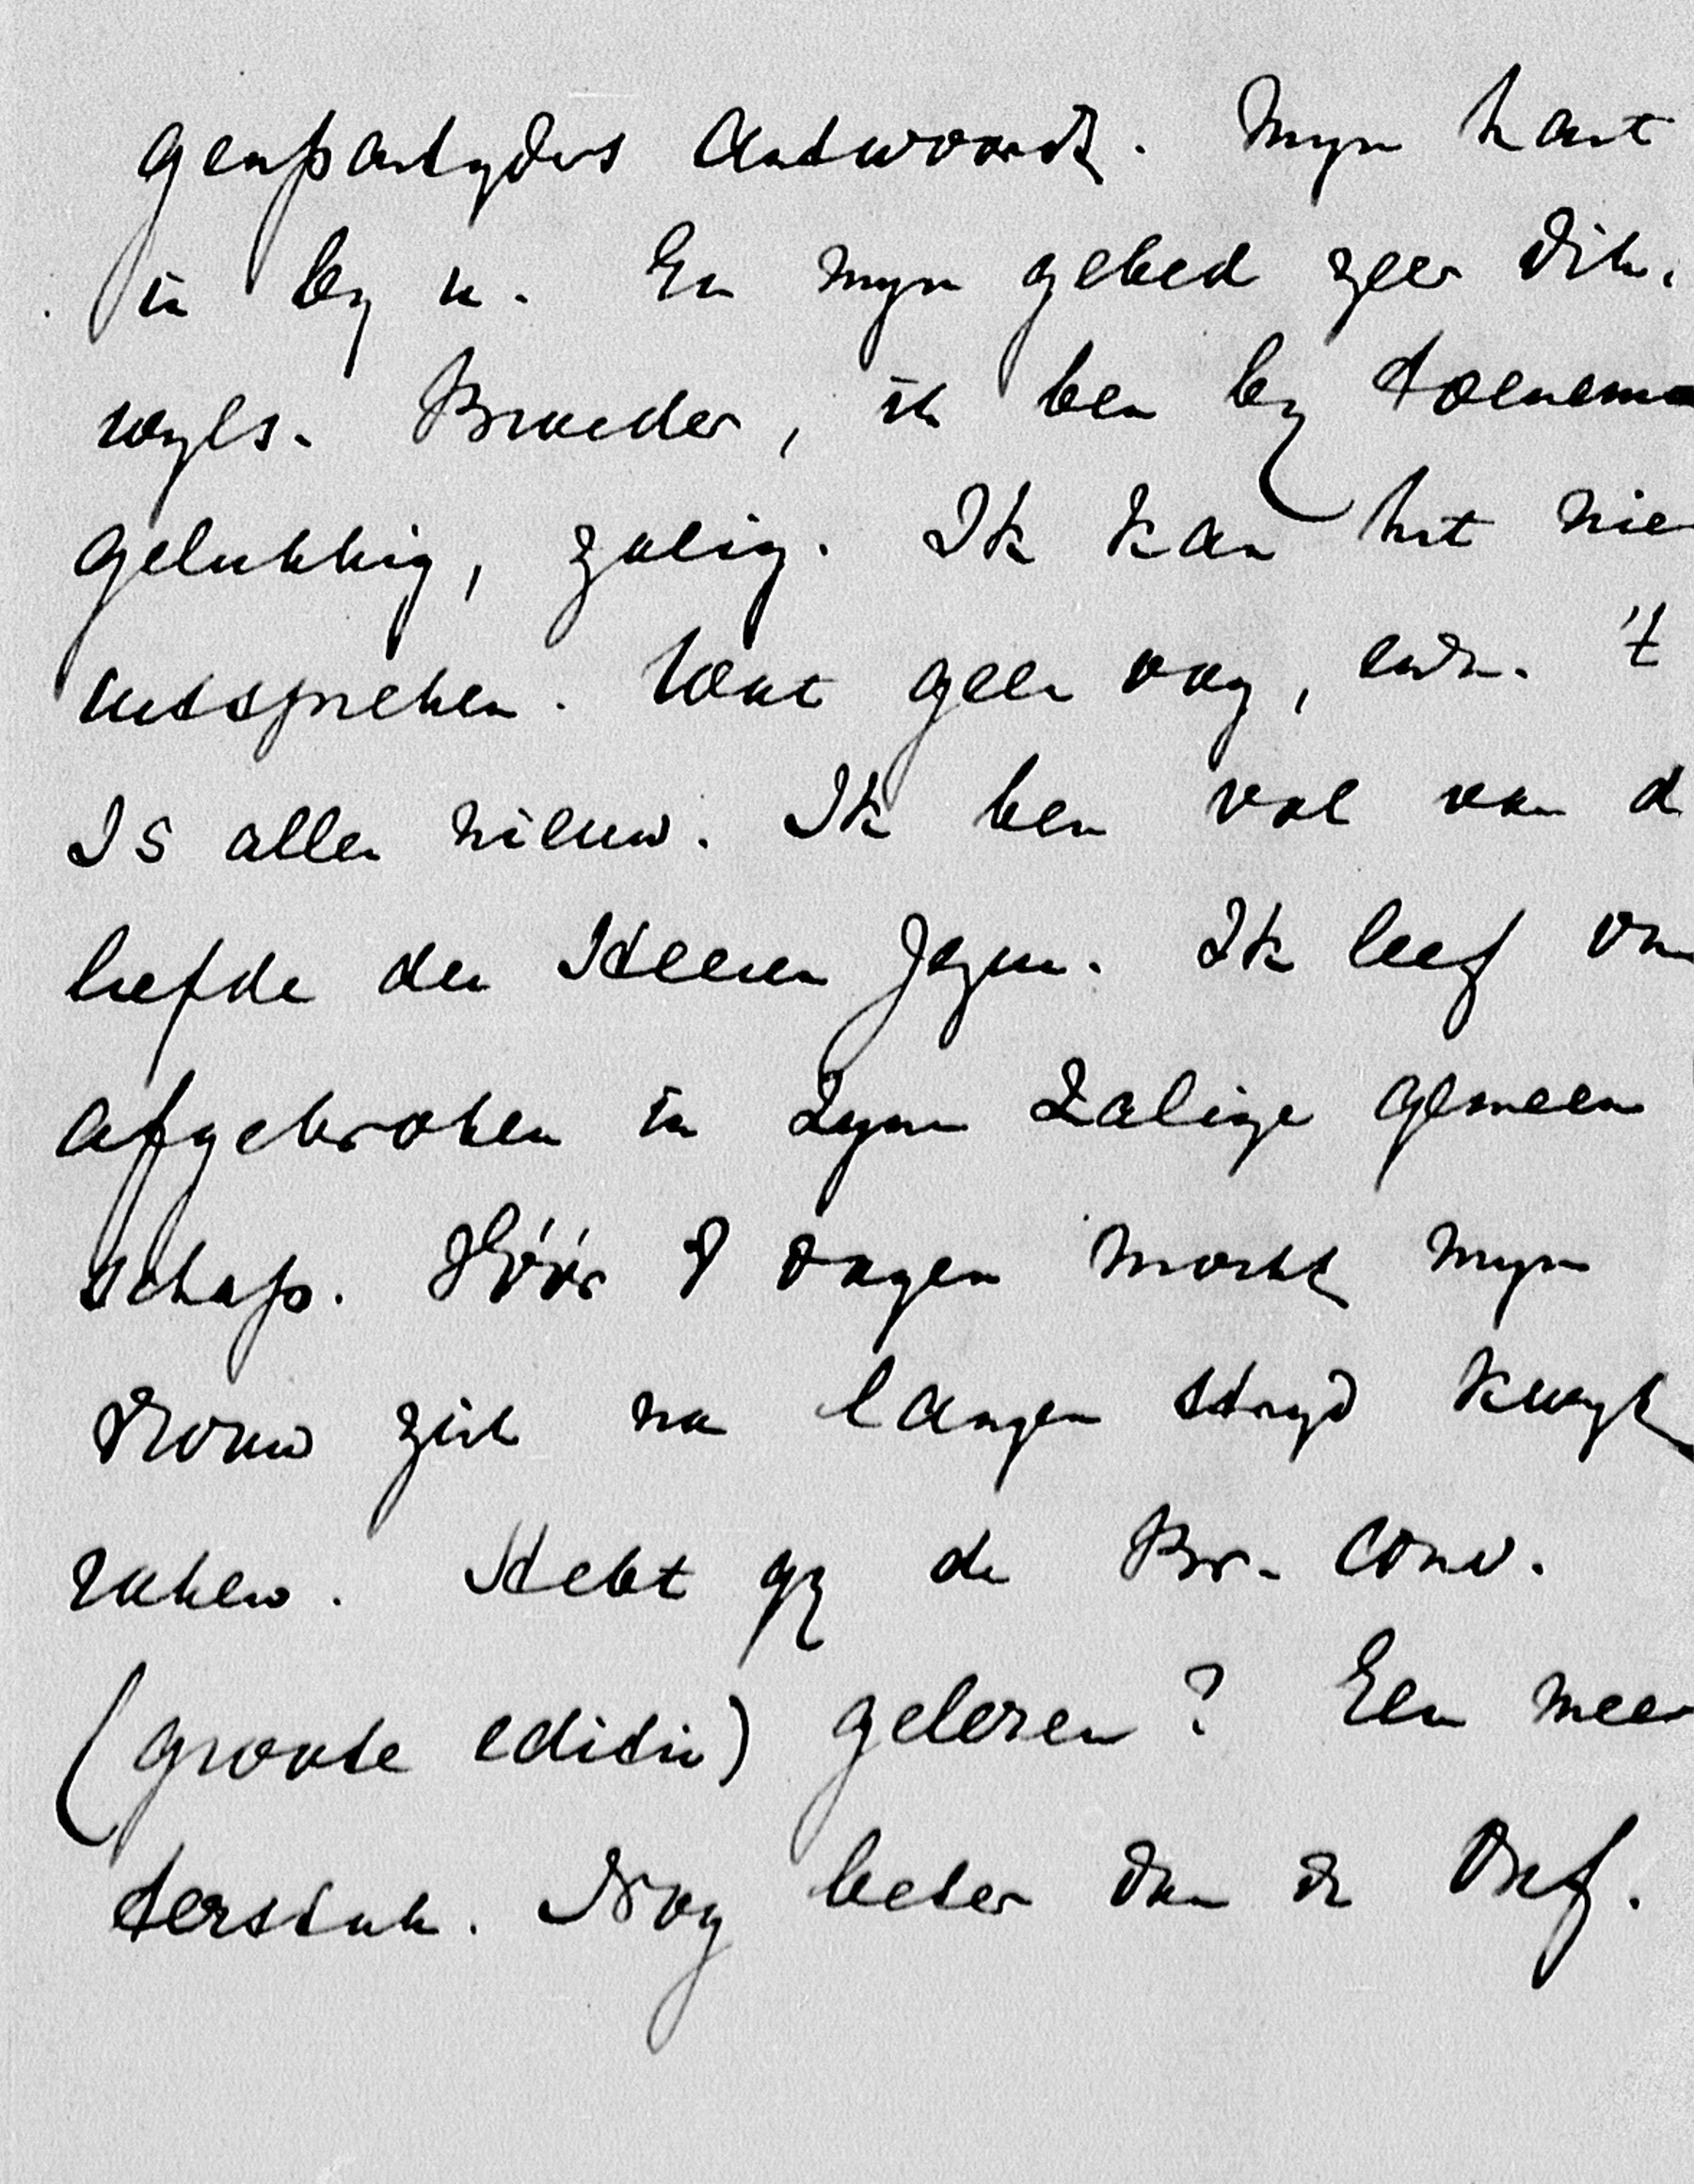 genpartyders antwoordt. Myn hart
is by u. En myn gebed zeer dik-
wyls. Broeder, ik ben by toenema
gelukkig, zalig. Ik kan het nie
uitspreken. Wat geen oog, enz. 't
Is alles nieuw. Ik ben vol van d
liefde des Heeren Jezus. Ik leef on
afgebroken in Zyne zalige gemeen
schap. Vóór 8 dagen mocht myn
vrouw zich na langen stryd kwyt
raken. Hebt gy de Br. Conv.
(groote editie) gelezen? Een mees
terstuk. Nog beter dan de Onf.